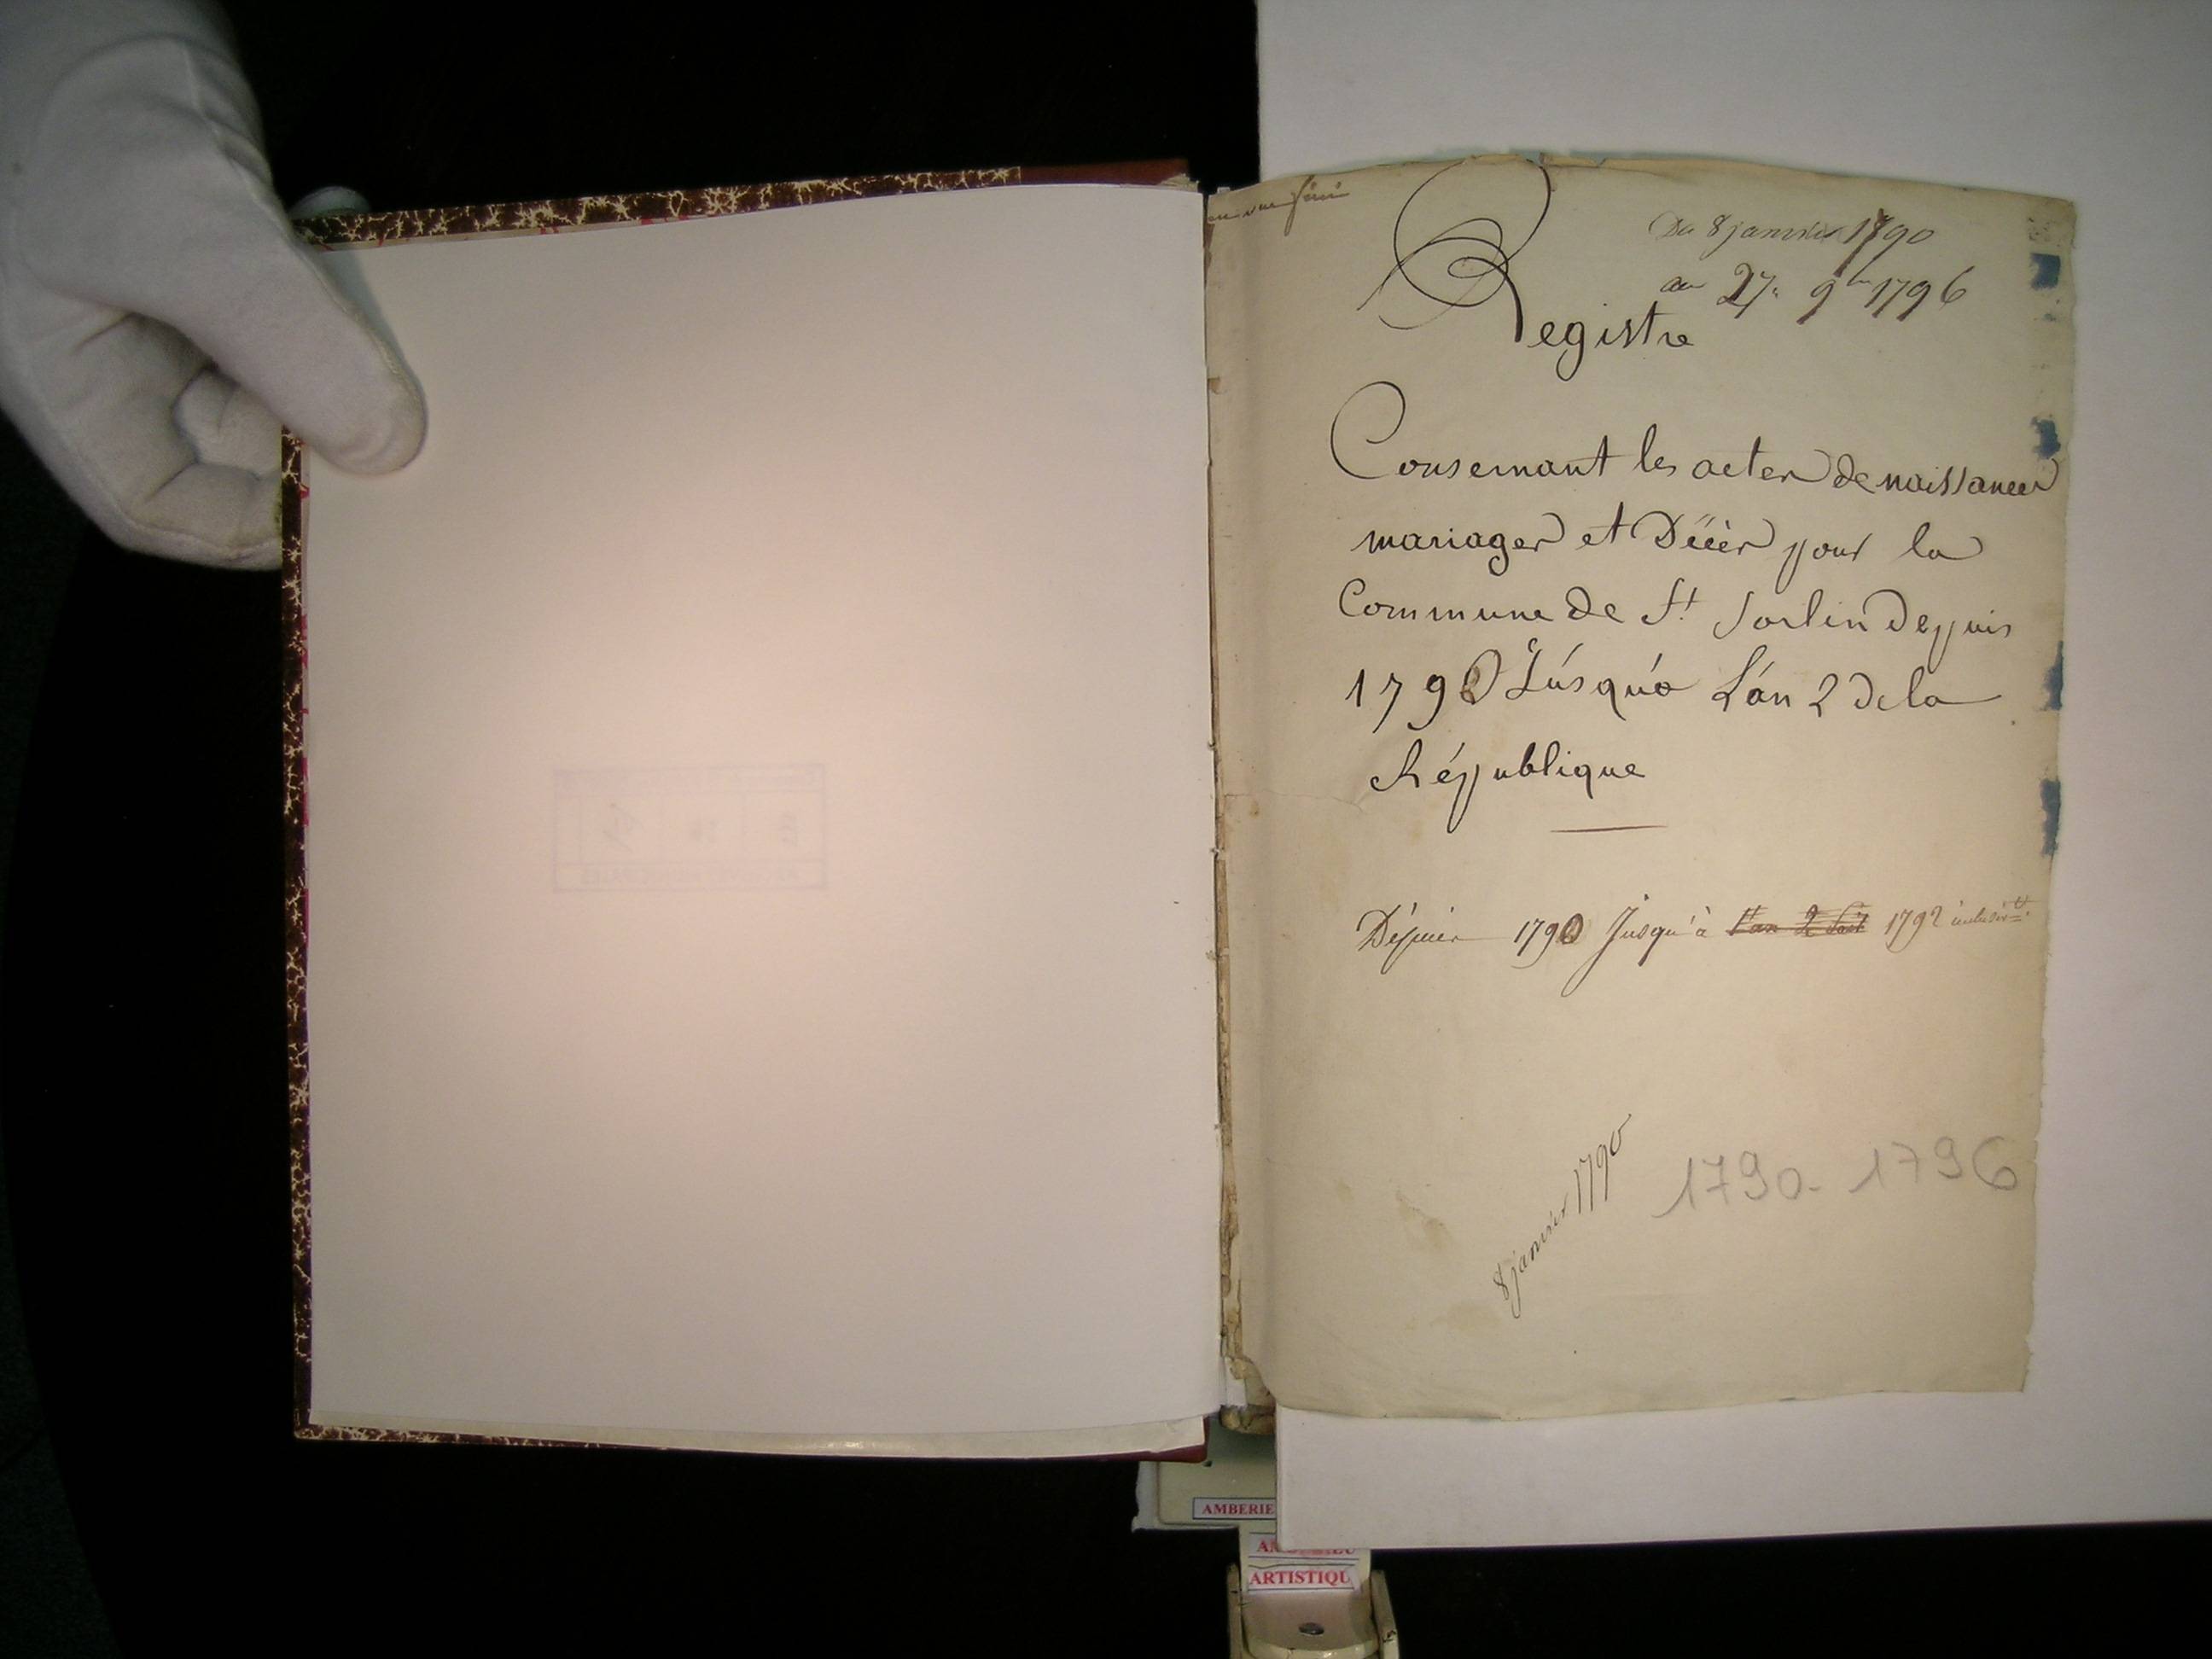 Du 8 janvier 1790
au 27. 9bre 1796
Registre
Consernant les actes de naissances
mariages et Décès pour la
Commune de St. Sorlin Depuis
1790 Jusqu'a L'an 2 de la
République
Dépuis 1790 Jusqu'à l'an 2 1792 inclusivt.
8 janvier 1790
1790 - 1796
AMBERIE
ARTISTIQU